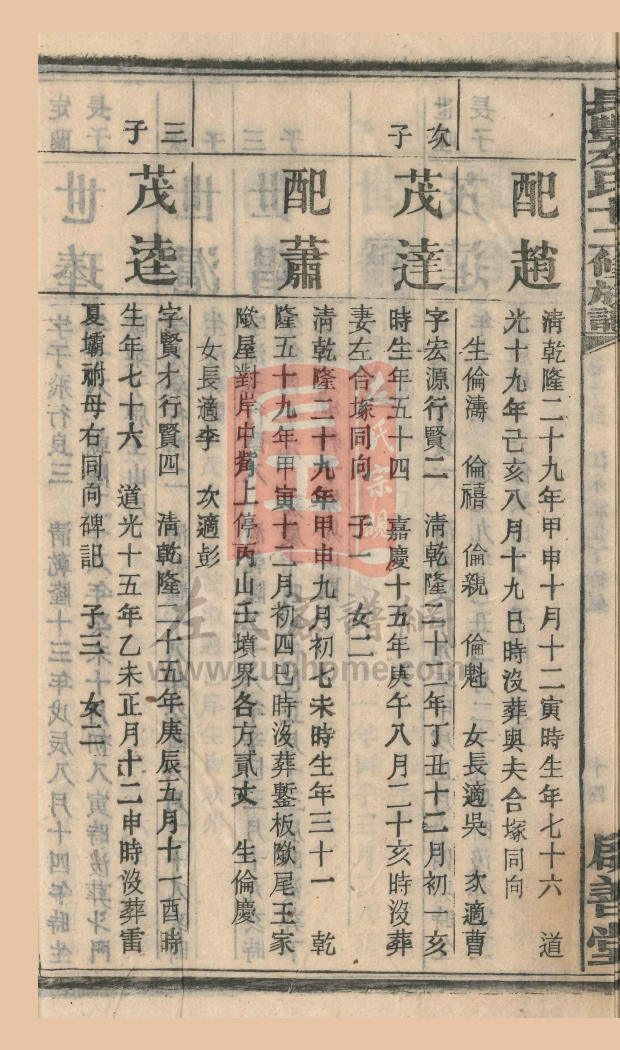 長豐左氏十二修族譜
啟善堂
配趙
清乾隆二十九年甲申十月十二寅時生年七十六　道
光十九年己亥八月十九巳時沒葬與夫合塚同向
生倫濤　倫禧　倫親　倫魁　女長適吳　次適曹
次子
茂達
字宏源行賢二　清乾隆二十二年丁丑十二月初一亥
時生年五十四　嘉慶十五年庚午八月二十亥時沒葬
妻左合塚同向　子一　女二
配蕭
清乾隆二十九年甲申九月初七未時生年三十一　乾
隆五十九年甲寅十二月初四巳時沒葬鏨板歘尾王家
歘屋對岸中嘴上停丙山壬墳界各方貳丈　生倫慶
女長適李　次適彭
三子
茂逵
字賢才行賢四　清乾隆二十五年庚辰五月十一酉時
生年七十六　道光十五年乙未正月十二申時沒葬雷
夏壩祔母右同向碑記　子三　女二
左氏宗親
左氏家譜網
www.zuphome.com